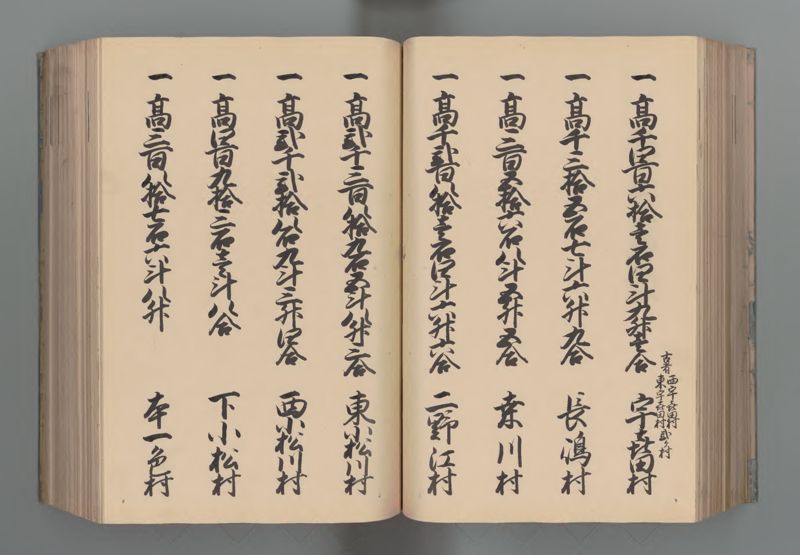 一 高千四百六拾壱石四斗九升壱合 宇喜田村
古者 西宇喜田村 東宇喜田村 弐ヶ村
一 高千三拾五石七斗六升九合 長嶋村
一 高三百五拾六石八斗五升五合 桑川村
一 高千弐百八拾壱石四斗六升六合 二野江村
一 高弐千三百八拾九石五斗八升二合 東小松川村
一 高弐千弐拾八石九斗三升四合 西小松川村
一 高四百九拾二石壱斗八合 下小松村
一 高三百八拾七石六斗八升 本一色村